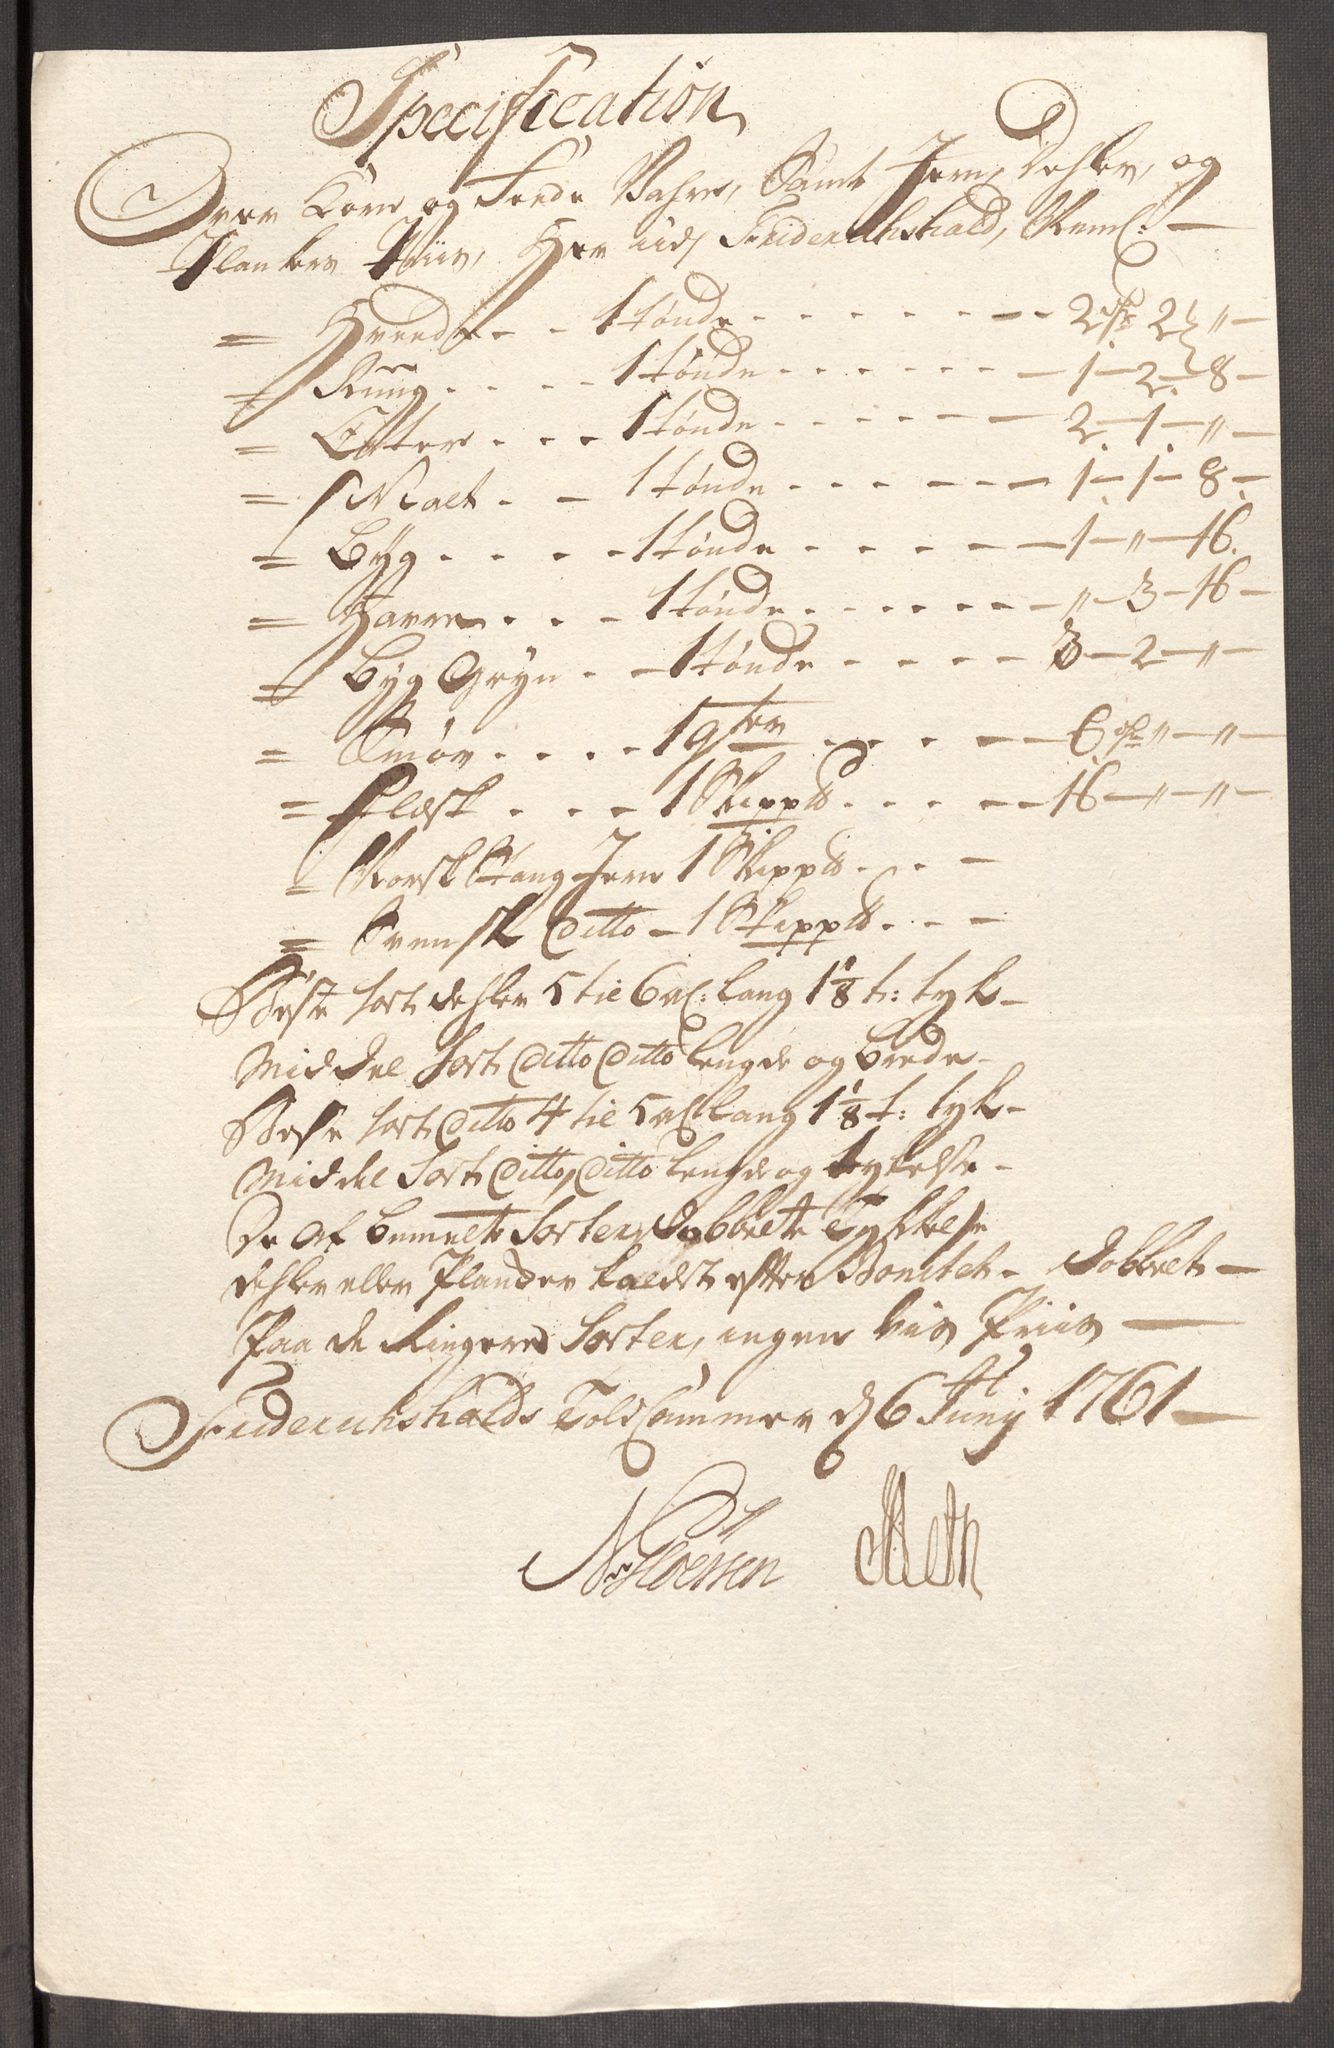 Specification
Over Korn og Fede Vahre, Samt Jern, Dehler, og
Plankers Priis, Her udj Friderichshald, Neml:
= Hvede - - 1 tønde - - - - - - - 2 rd 2 ½ " -
= Rüüg - - - - 1 tønde - - - - - - - 1 - 2 - 8 -
= Erter - - - 1 tønde - - - - - - 2 - 1 - " -
= Malt - - 1 tønde - - - - - - - 1 - 1 - 8 -
= Byg - - - - 1 tønde - - - - - 1 - " - 16.
= Havre - - - 1 tønde - - - - - - " - 3 - 16 -
= Byg Gryn - - 1 tønde - - - - 3 - 2 - " -
= Smør - - - - 1 - - - - - 6 rd " - " -
= Flæsk - - - 1 Skippd - - - - 16 - " - " -
= Norsk Stang Jern 1 Skippd - - -
= Svensk Ditto - 1 Skippd - - -
Beste sort dehler 5 til 6 al: lang 1 1/8 t: tyk -
Middel Sort Ditto Ditto lengde og brede -
Beste sort Ditto 4 til 5 al lang 1 1/8 t: tyk -
Middel Sort Ditto, Ditto lengde og tykelse -
De af bemelte Sorter, Dobbelte Tykkelse
dehler eller Plancker kaldet efter Bonitet - Dobbelt -
Paa de Ringere Sorter, ingen vis Priis
Friderichshalds Told Cammer d 6 Junij 1761